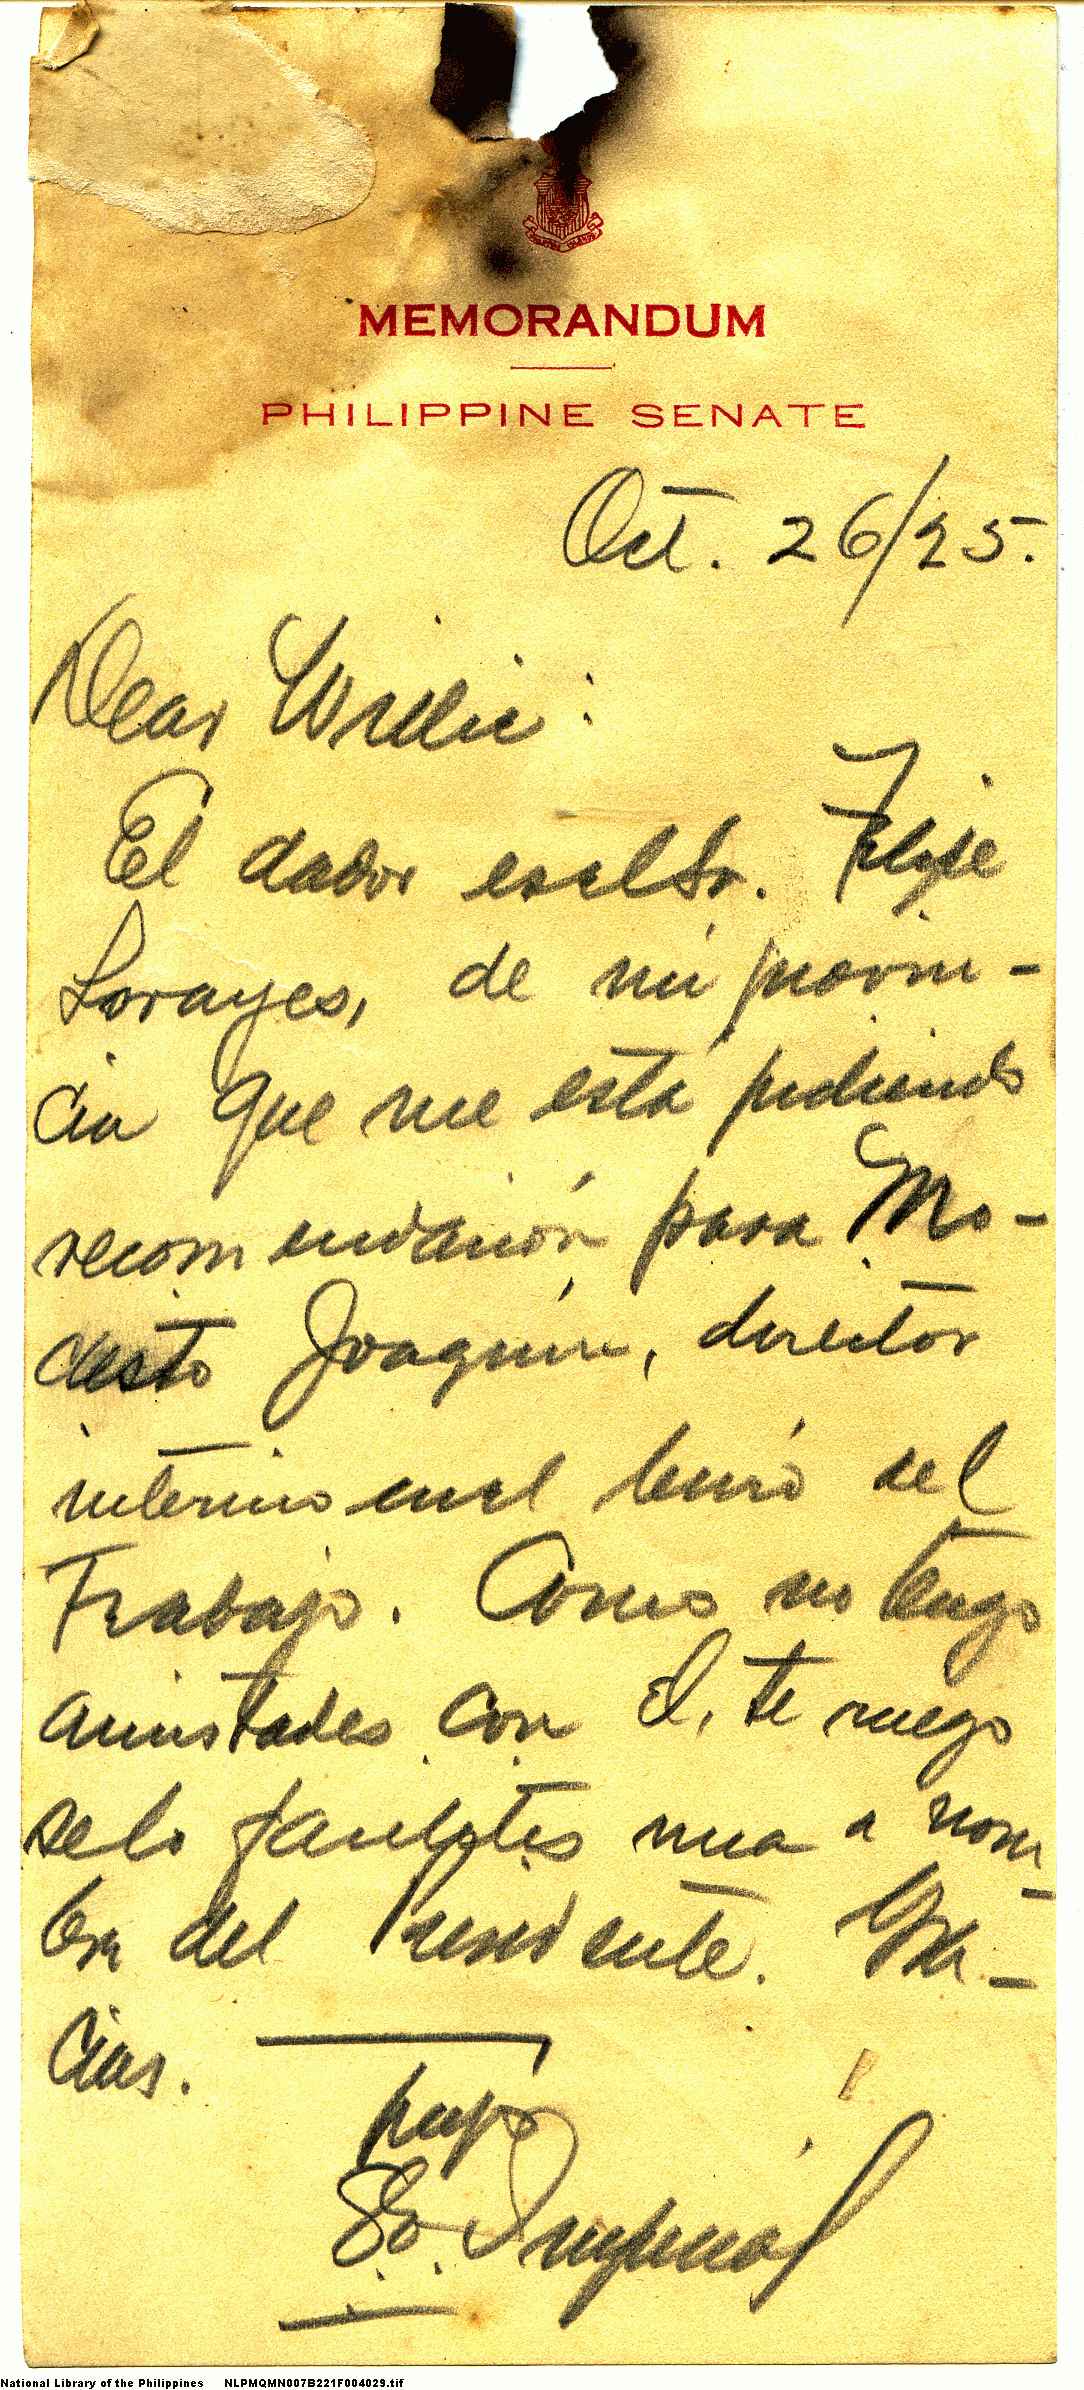 MEMORANDUM
PHILIPPINE SENATE
Oct. 26/25.
Dear Willie:
El dador es el Sr. Felipe
Lorayes, de mi provin-
cia que me está pidiendo
recomendación para Mo-
desto Joaquin, director
interino en el buró del
Trabajo. Como no tengo
amistades con él, te ruego
se lo facilites una a nom-
bre del Presidente. Gra-
cias.
Tuyo
Imperial
National Library of the Philippines NLPMQMN007B221F004029.tif